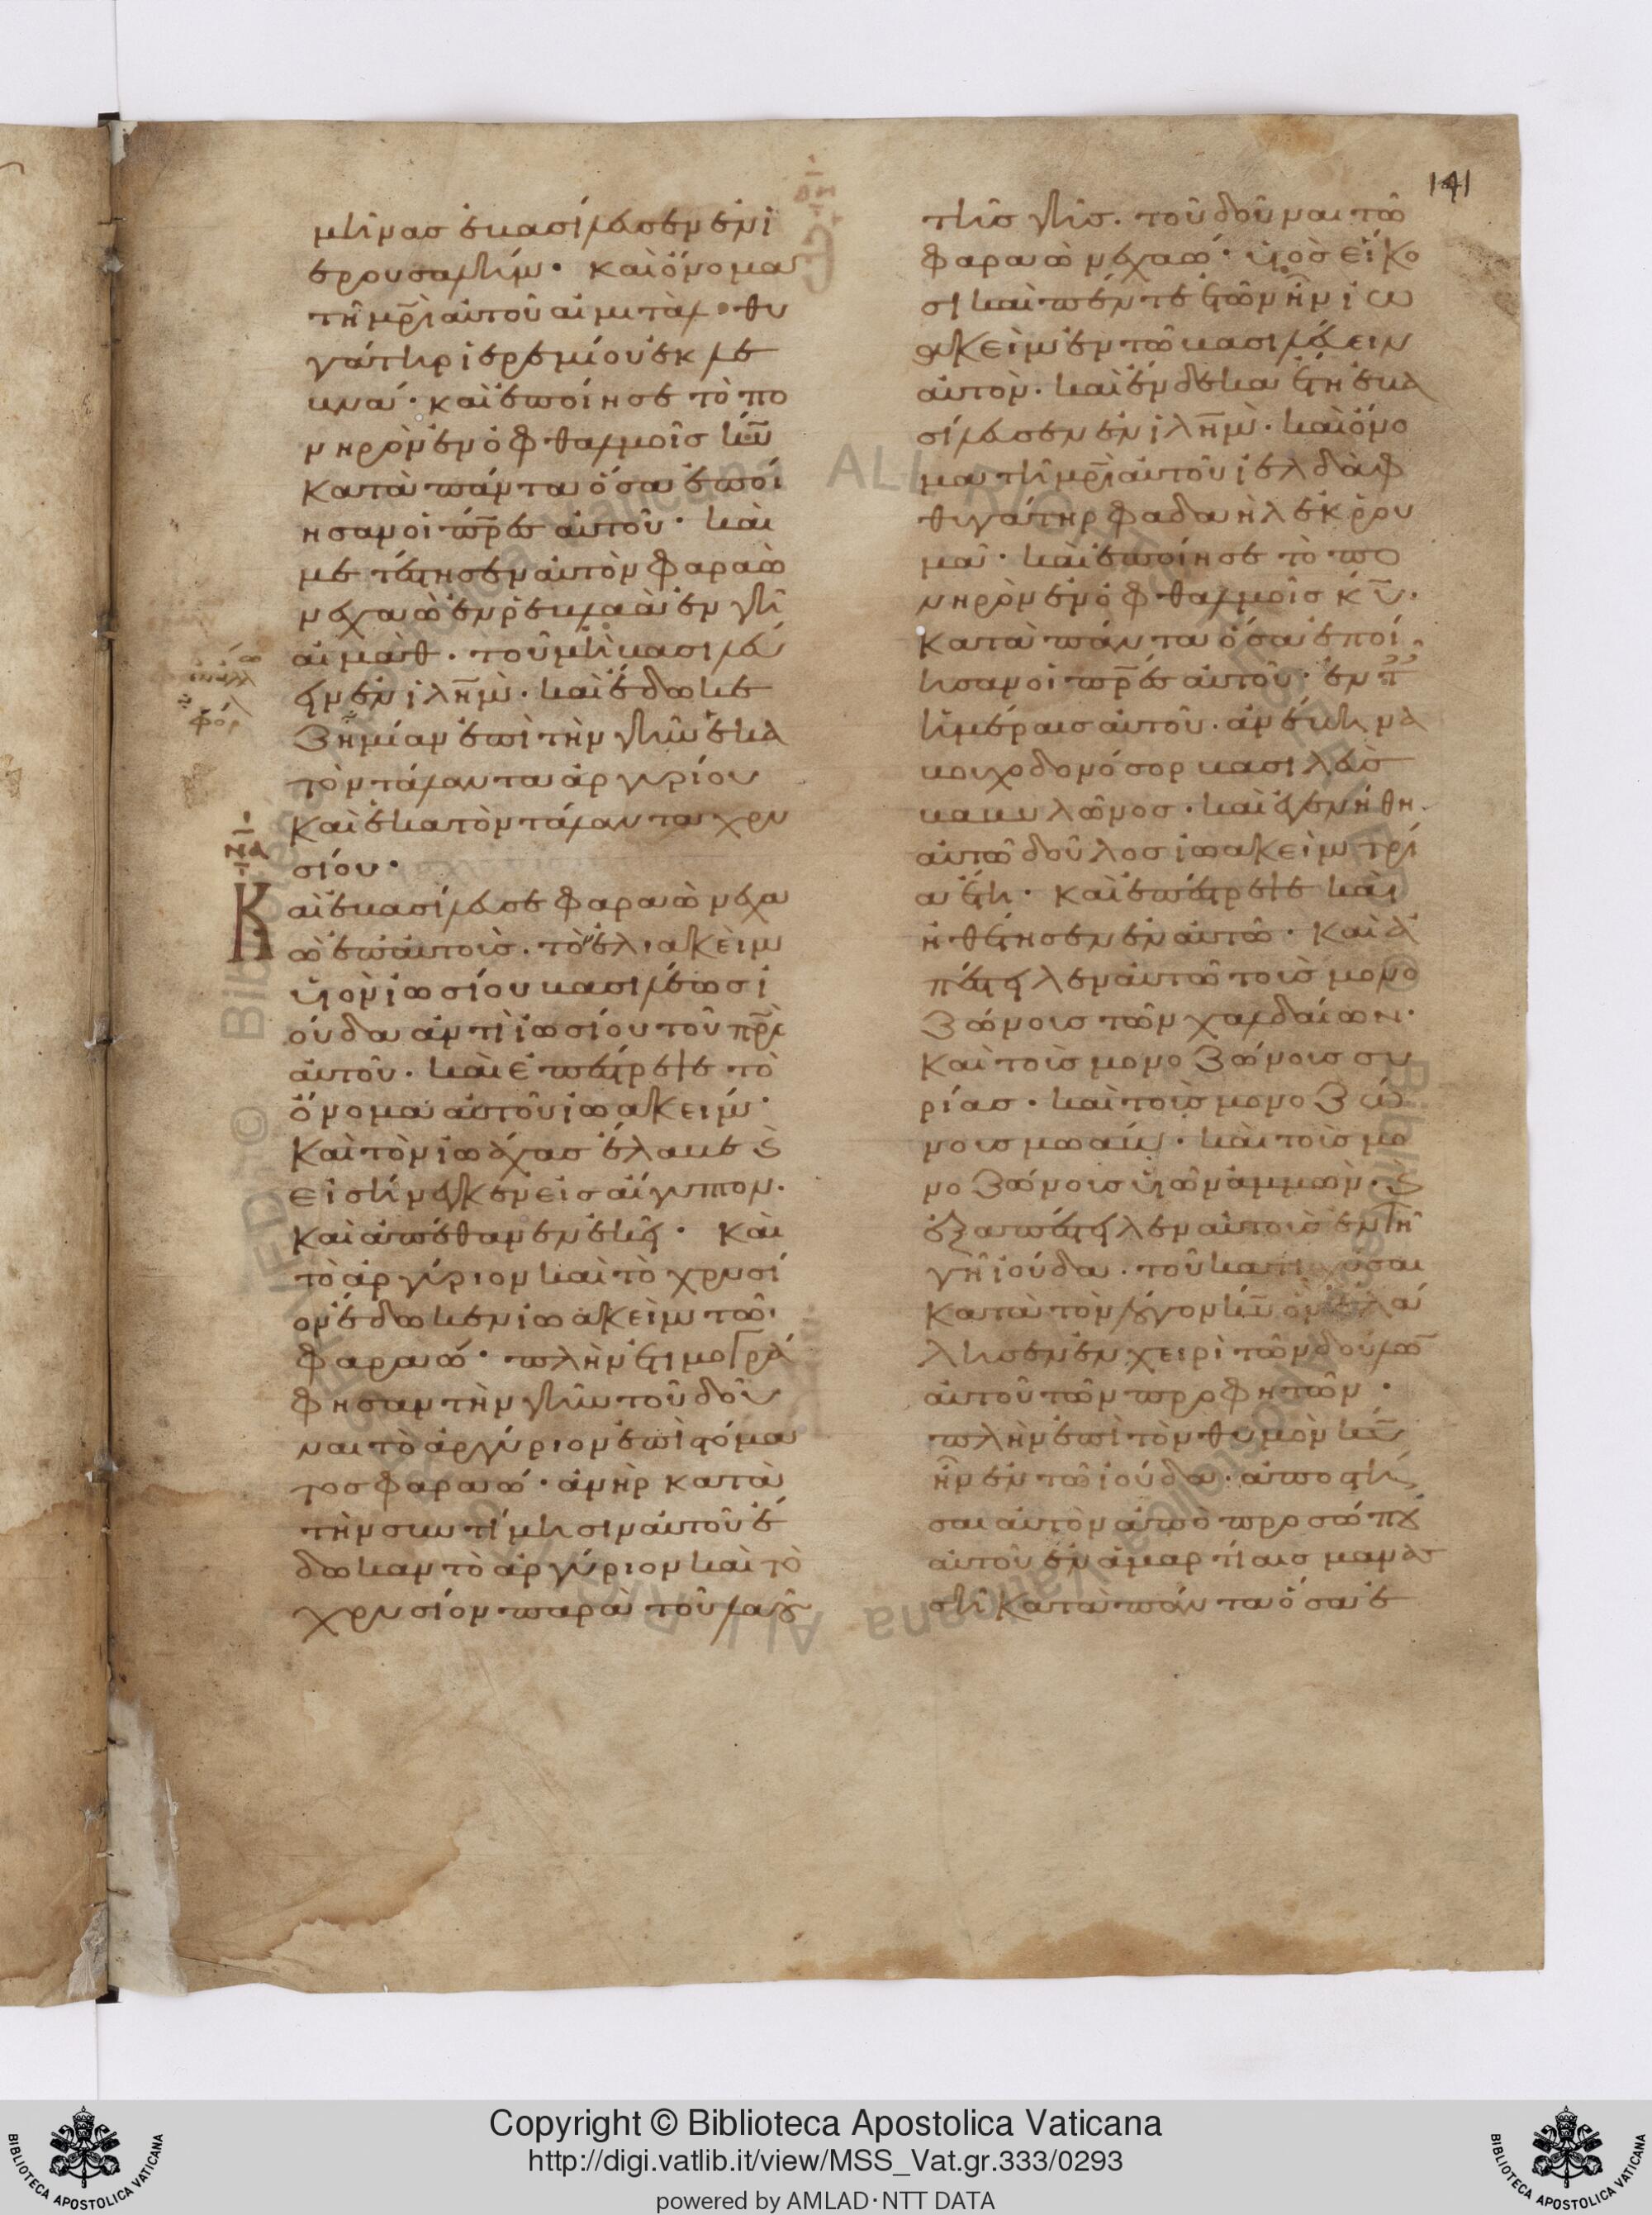 141
μῆνας ἐβασίλευσεν ἐν ἱ
ερουσαλήμ· καὶ ὄνομα
τῆ μρ̅ὶ αὐτοῦ αἰμιτὰλ· θυ
γάτηρ ἱερεμίου ἐκ λε
βνά· καὶ ἐποίησε τὸ πο
νηρὸν ἐν ὀφθαλμοῖς κυ̅
κατὰ πάντα ὅσα ἐποί
ησαν οἱ πρ̅ες αὐτοῦ· καὶ
μετέστησεν αὐτὸν φαραὼ
νεχαὼ ἐν ῥεβλαὰ ἐν γῆ
αἰμὰθ· τοῦ μὴ βασιλεύ
ειν ἐν ἰλη̅μ· καὶ ἔδωκε
ζημίαν ἐπὶ τὴν γῆν ἑκα
τὸν τάλαντα ἀργυρίου
καὶ ἑκατὸν τάλαντα χρυ
σίου·
Καὶ ἐβασίλευσε φαραὼ νεχα
ὼ ἐπ' αὐτοῖς· τὸν ἐλιακεὶμ
υἱὸν ἰωσίου βασιλέως ἰ
ούδα ἀντὶ ἰωσίου τοῦ πρ̅ς
αὐτοῦ· καὶ ἐπέστρεψε τὸ
ὄνομα αὐτοῦ ἰωακείμ·
καὶ τὸν ἰωάχας ἔλαβε ϗ
εἰσήνεγκεν εἰς αἴγυπτον·
καὶ ἀπέθανεν ἐκεῖ· καὶ
τὸ ἀργύριον καὶ τὸ χρυσί
ον ἔδωκεν ἰωακεὶμ τῶ
φαραώ· πλὴν ἐτιμογρά
φησαν τὴν γῆν τοῦ δοῦ
ναι τὸ ἀργύριον ἐπὶ στόμα
τος φαραώ· ἀνὴρ κατὰ
τὴν συντίμησιν αὐτοῦ ἔ
δωκαν τὸ ἀργύριον καὶ τὸ
χρυσίον παρὰ τοῦ λαοῦ
τῆς γῆς· τοῦ δοῦναι τῶ
φαραὼ νεχαώ· υἱὸς εἴκο
σι καὶ πέντε ἐτῶν ἦν ἰω
ακεὶμ ἐν τῶ βασιλεύειν
αὐτόν· καὶ ἕνδεκα ἔτη ἐβα
σίλευσεν ἐν ἰλη̅μ· καὶ ὄνο
μα τῆ μρ̅ὶ αὐτοῦ ἰελδὰφ
θυγάτηρ φαδαὴλ ἐκ ῥου
μά· καὶ ἐποίησε τὸ πο
νηρὸν ἐν ὀφθαλμοῖς κυ̅·
κατὰ πάντα ὅσα ἐποί
ησαν οἱ πρ̅ες αὐτοῦ· ἐν τ
ἡμέραις αὐτοῦ· ἀνέβη να
βουχοδονόσορ βασιλεὺς
βαβυλῶνος· καὶ ἐγενήθη
αὐτῶ δοῦλος ἰωακεὶμ τρί
α ἔτη· καὶ ἐπέστρεψε καὶ
ἠθέτησεν ἐν αὐτῶ· καὶ ἀ
πέστειλεν αὐτῶ τοὺς μονο
ζώνοις τῶν χαλδαίων·
καὶ τοῖς μονοζώνοις συ
ρίας· καὶ τοῖς μονοζώ
νοις μωάβ· καὶ τοῖς μο
νοζώνοις υἱῶν ἀμμών· ϗ
ἐξαπέστειλεν αὐτοὺς ἐν τῆ
γῆ ἰούδα· τοῦ κατισχύσαι
κατὰ τὸν λόγον κυ̅ ὃν ἐλά
λησεν ἐν χειρὶ τῶν δούλων
αὐτοῦ τῶν προφητῶν·
πλὴν ἐπὶ τὸν θυμὸν κυ̅
ἦν ἐν τῶ ἰούδα· ἀποστῆ
σαι αὐτὸν ἀπὸ προσώπου
αὐτοῦ ἐν ἁμαρτίαις μανας
σῆ κατὰ πάντα ὅσα ἐ
Copyright © Biblioteca Apostolica Vaticana
http://digi.vatlib.it/view/MSS_Vat.gr.333/0293
powered by AMLAD·NTT DATA
BIBLIOTECA APOSTOLICA VATICANA
BIBLIOTECA APOSTOLICA VATICANA